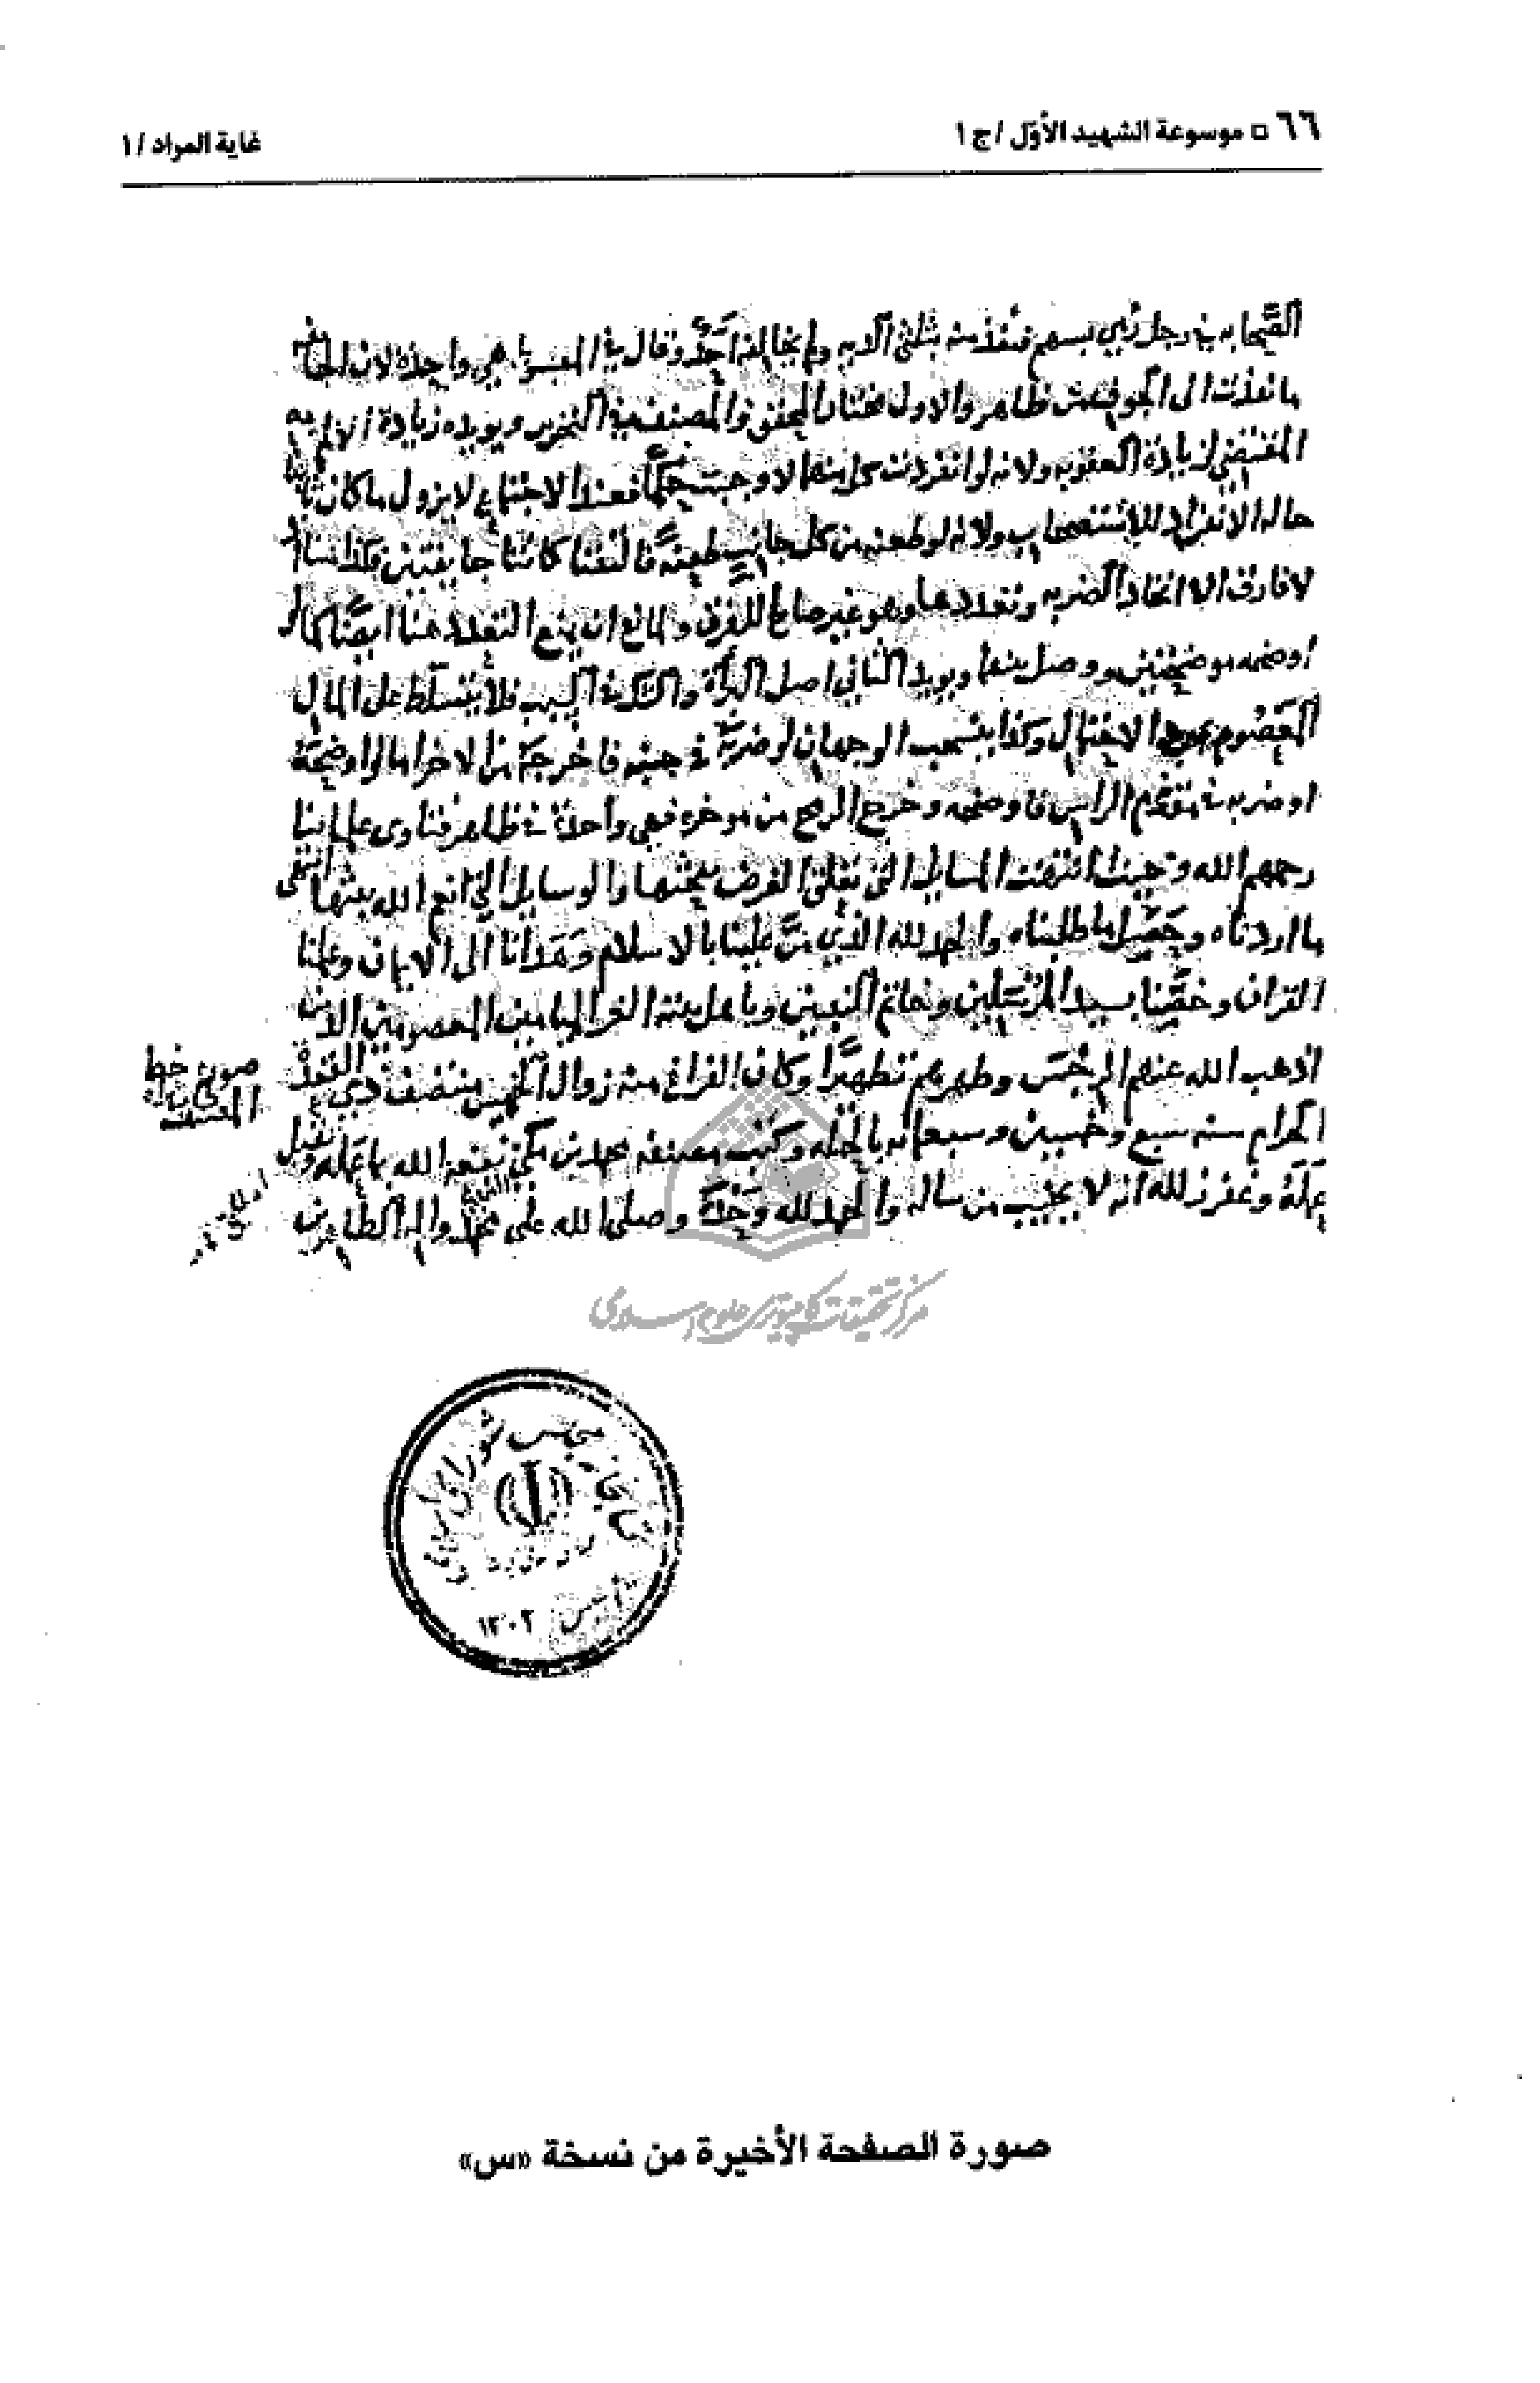 ٦٦ □ موسوعة الشهيد الأوّل / ج ١
غاية المراد / ١
الصحابه في رجل رمي بسهم فنفذ منه بثلثي الديه ولم يخالفه احد وقال في المبسوط هي واحدة لان الجائفه
ما نفذت الى الجوف من ظاهر والاول مختار المحقق والمصنف في التحرير ويويده زيادة الالم
المقتضي لزيادة العقوبه ولانه لو انفردت كل منهما لاوجبت حكما فعند الاجتماع لا يزول ما كان ثابتا
حاله الانفراد للاستصحاب ولانه لو طعنه من كل جانب طعنة فالتقتا كانتا جايفتين فكذا هنا اذ
لا فارق الا اتحاد الضربه وتعددها وهو غير صالح للفرق ولمانع ان يمنع التعدد هنا ايضا كما لو
اوضحه موضحتين ووصل بينهما ويويد الثاني اصل البرأة والشك في السبب فلا يتسلط على المال
المعصوم بمجرد الاحتمال وكذا ينسحب الوجهان لو ضربه في جنبه فاخرجه من الاخر اما لو اوضحه
او ضربه في مقدم الراس فاوضحه وخرج الرمح من موخره فهي واحدة في ظاهر فتاوى علمائنا
رحمهم الله وحيث انتهت المسايل التي تعلق الغرض ببحثها والوسايل التي انعم الله ببثها انتهى
ما اردناه وحصل ما طلبناه والحمد لله الذي من علينا بالاسلام وهدانا الى الايمان وعلمنا
القران وخصنا بسيد المرسلين وخاتم النبيين وباهل بيته الغر الميامين المعصومين الذين
اذهب الله عنهم الرجس وطهرهم تطهيرا وكان الفراغ منه زوال الخميس منتصف ذي القعدة
الحرام سنه سبع وخمسين وسبعمائه بالحله وكتب مصنفه محمد بن مكي نفعه الله بما علمه وتقبل
عمله وغفر زلله انه لا يخيب من ساله والحمد لله وحده وصلى الله على محمد واله الطاهرين
صورة خط
المصنف
مركز تحقیقات کامپیوتری علوم اسلامی
کتابخانه مجلس شورای اسلامی
تأسیس ١٣٠٢
صورة الصفحة الأخيرة من نسخة «س»